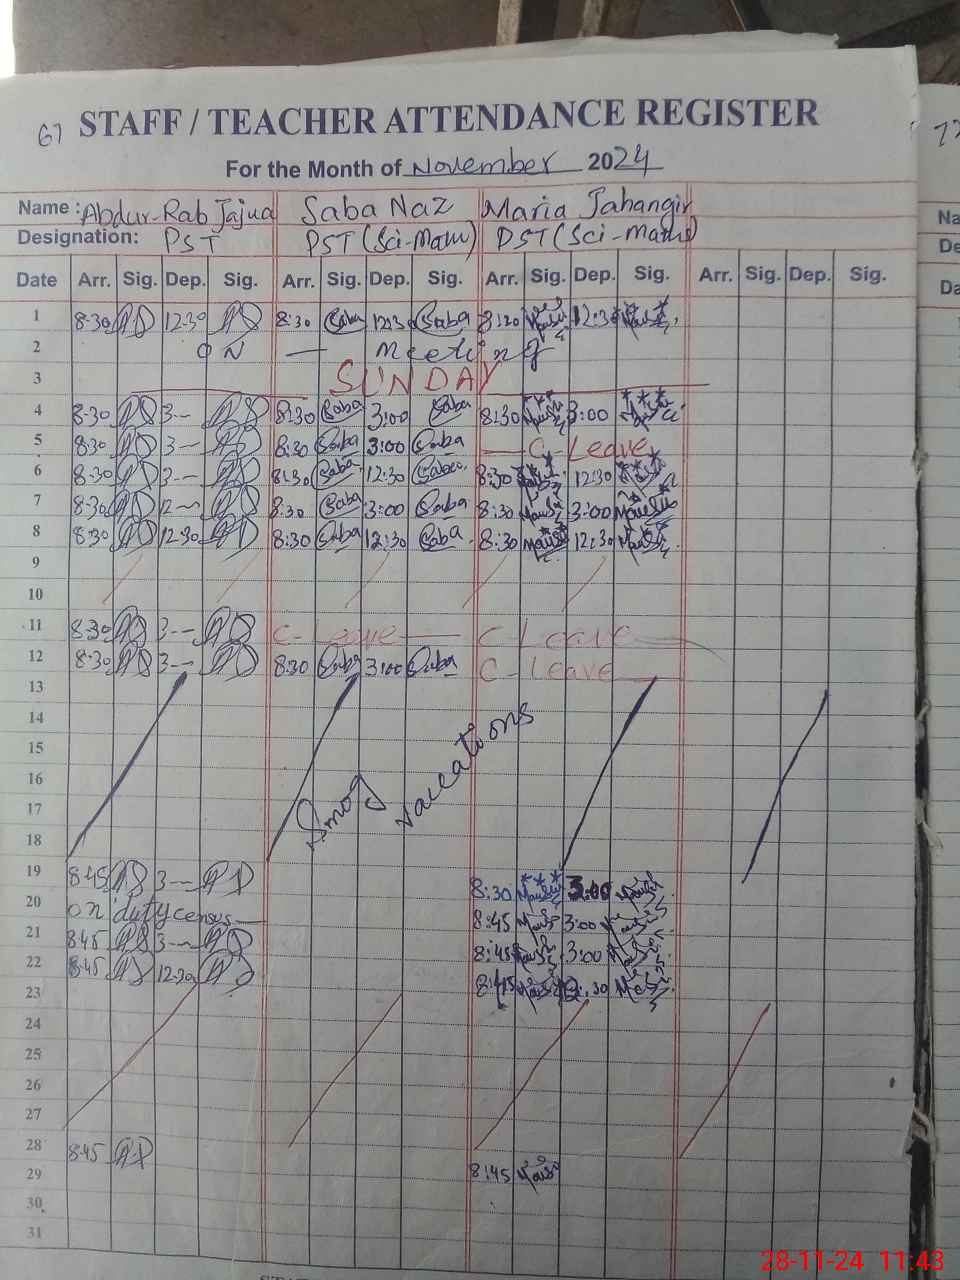 67 STAFF / TEACHER ATTENDANCE REGISTER
For the Month of November 2024
Name : Abdur-Rab Jajua Saba Naz Maria Jahangir
Designation: PST PST (Sci-Math) PST (Sci-Maths)
Date Arr. Sig. Dep. Sig. Arr. Sig. Dep. Sig. Arr. Sig. Dep. Sig. Arr. Sig. Dep. Sig.
1 8-30 12-30 8:30 Saba 12:30 Saba 8:30 12:30
2 ON — Meeting
3 SUNDAY
4 8-30 3— 8:30 Saba 3:00 Saba 8:30 3:00
5 8-30 3— 8:30 Saba 3:00 Saba — C-Leave
6 8-30 3— 8:30 Saba 12:30 Saba 8:30 12:30
7 8-30 12— 8:30 Saba 3:00 Saba 8:30 3:00
8 8-30 12-30 8:30 Saba 12:30 Saba 8:30 12:30
9
10
11 8-30 3— C-Leave — C-Leave —
12 8-30 3— 8:30 Saba 3:00 Saba C-Leave
13
14
15
16
17
18
Smog vaccations
19 8-45 3— 8:30 3:00
20 on duty census — 8:45 3:00
21 8-45 3— 8:45 3:00
22 8-45 12-30 8:45 12:30
23
24
25
26
27
28 8-45
29 8:45
30
31
28-11-24 11:43